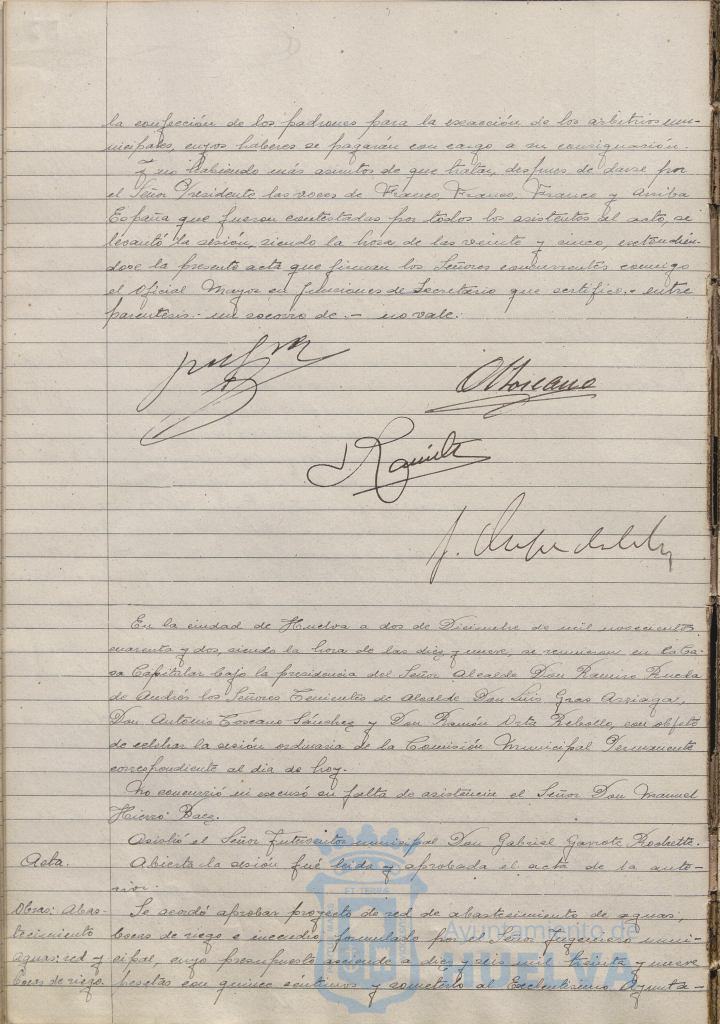 la confección de los padrones para la exacción de los arbitrios mu-
nicipales, cuyos haberes se pagarán con cargo a su consignación.
Y no habiendo más asuntos de que tratar, después de darse por
el Señor Presidente las voces de Franco, Franco, Franco y Arriba
España que fueron contestadas por todos los asistentes al acto, se
levantó la sesión, siendo la hora de las veinte y cinco, extendién-
dose la presente acta que firman los Señores concurrentes conmigo
el Oficial Mayor en funciones de Secretario que certifico.- entre
parentesis.- un socorro de.- no vale.
A Toscano
En la ciudad de Huelva a dos de Diciembre de mil novecientos
cuarenta y dos, siendo la hora de las diez y nueve, se reunieron en la Ca-
sa Capitular bajo la presidencia del Señor Alcalde Don Ramiro Rueda
de Andrés los Señores Tenientes de Alcalde Don Luis Gras Arriaga,
Don Antonio Toscano Sánchez y Don Ramón Orta Rebollo, con objeto
de celebrar la sesión ordinaria de la Comisión Municipal Permanente
correspondiente al dia de hoy.
No concurrió ni excusó su falta de asistencia el Señor Don Manuel
Hierro Baez.
Asistió el Señor Interventor municipal Don Gabriel Garrote
Acta. Abierta la sesión fué leida y aprobada el acta de la ante-
rior.
Obras: Abas- Se acordó aprobar proyecto de red de abastecimiento de aguas,
tecimiento bocas de riego e incendio, formulado por el Señor Ingeniero muni-
aguas: red y cipal, cuyo presupuesto asciende a diez y seis mil treinta y nueve
bocas de riego. pesetas con quince céntimos y someterlo al Excelentísimo Ayunta-
Ayuntamiento de
HUELVA